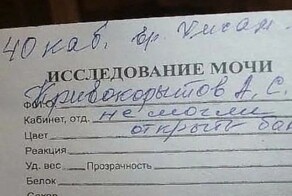 40 каб. вр. Хисам.
ИССЛЕДОВАНИЕ МОЧИ
Кривокорытов А. С.
Кабинет, отд. не могли
Цвет открыть бан
Реакция
Уд. вес Прозрачность
Белок
Сахар